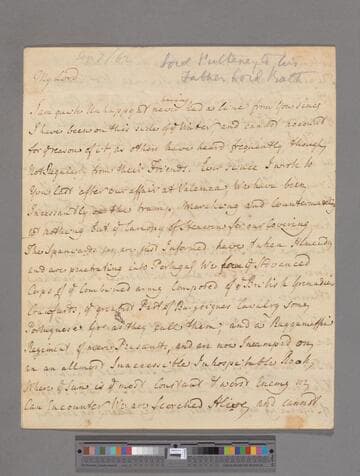 Oct 1/62
Lord Pulteney to his
Father Lord Bath
My Lord
I am quite Unhappy at never having had a line from you Since
I have been on this side of ye Water and cannot account
for ye reason of it as others have heard frequently though
not Regularly from their Friends. Ever since I wrote to
You last after our affair at Valenza, We have been
Incessantly on the tramp, Marching and Countermarching
wth nothing but ye Canopy of Heavens for our Covering
The Spaniards we are just Informed have taken Almeida
and are penetrating into Portugal We form ye Advanced
Corps of ye Combined army Composed of ye British Grenadiers
Crawfurds, ye greatest Part of Burgoignes Cavalry some
Portuguese Gre as they call them, and a Raggamuffin
Regiment of mere Peasants, and are now Incamped on
an allmost Innaccessible Inhospitable Rock,
Where ye Sun is ye most Constant & worst Enemy we
Can Encounter We are Scorched Alive, and cannot